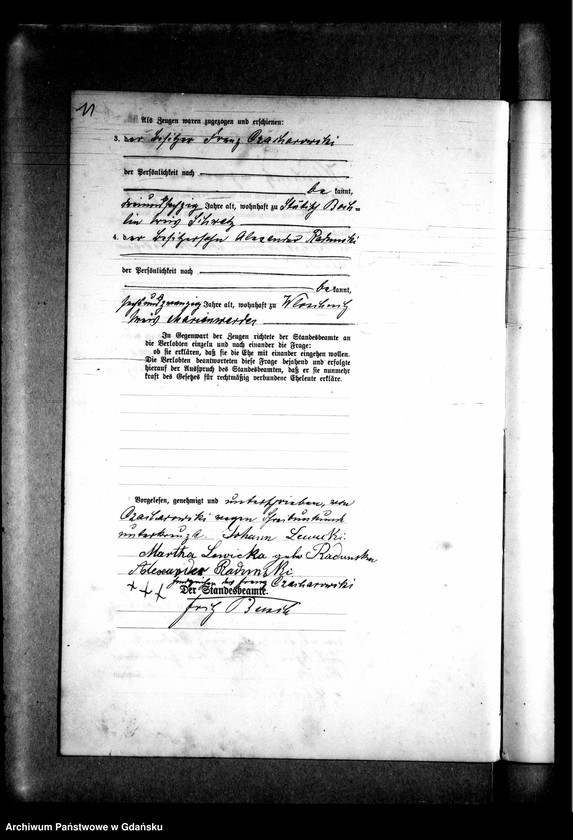 11
Als Zeugen waren zugezogen und erschienen:
3. der Besitzer Franz Czacharowski
der Persönlichkeit nach
be kannt,
dreiundsechzig Jahre alt, wohnhaft zu
Kreis Schwetz
4. der Besitzersohn Alexander Radunski
der Persönlichkeit nach
be kannt,
sechsundzwanzig Jahre alt, wohnhaft zu
Kreis Marienwerder
In Gegenwart der Zeugen richtete der Standesbeamte an
die Verlobten einzeln und nach einander die Frage:
ob sie erklären, daß sie die Ehe mit einander eingehen wollen.
Die Verlobten beantworteten diese Frage bejahend und erfolgte
hierauf der Ausspruch des Standesbeamten, daß er sie nunmehr
kraft des Gesetzes für rechtmäßig verbundene Eheleute erkläre.
Vorgelesen, genehmigt und unterschrieben, von
Czacharowski wegen Schreibunkunde
unterkreuzt. Johann Lewicki
Martha Lewicka geb. Radunska
Alexander Radunski
+++ Handzeichen des Franz Czacharowski
Der Standesbeamte.
Fritz
Archiwum Państwowe w Gdańsku